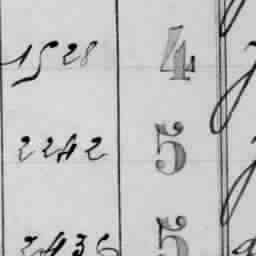 1528 4
2242 5
2436 5